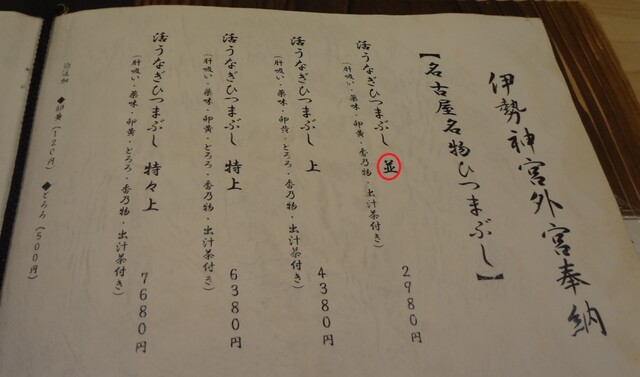 伊勢神宮外宮奉納
【名古屋名物ひつまぶし】
活うなぎひつまぶし 並 2980円
(肝吸い・薬味・卵黄・香乃物・出汁茶付き)
活うなぎひつまぶし 上 4380円
(肝吸い・薬味・卵黄・とろろ・香乃物・出汁茶付き)
活うなぎひつまぶし 特上 6380円
(肝吸い・薬味・卵黄・とろろ・香乃物・出汁茶付き)
活うなぎひつまぶし 特々上 7680円
(肝吸い・薬味・卵黄・とろろ・香乃物・出汁茶付き)
追加 ◆卵黄(120円) ◆とろろ(500円)